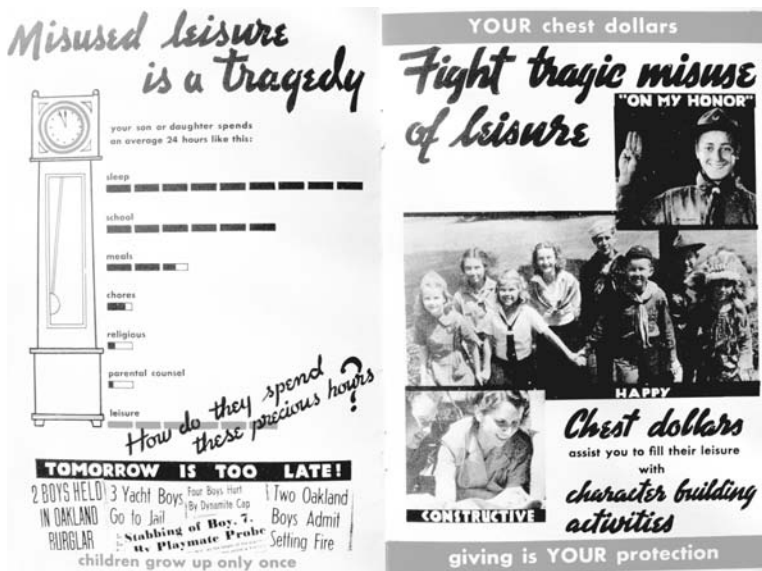 Misused leisure
is a tragedy
your son or daughter spends
an average 24 hours like this:
sleep
school
meals
chores
religious
parental counsel
leisure
How do they spend
these precious hours?
TOMORROW IS TOO LATE!
2 BOYS HELD
IN OAKLAND
BURGLAR
3 Yacht Boys
Go to Jail
Four Boys Hurt
By Dynamite Cap
Stabbing of Boy, 7,
By Playmate Probe
Two Oakland
Boys Admit
Setting Fire
children grow up only once
YOUR chest dollars
Fight tragic misuse
of leisure
"ON MY HONOR"
HAPPY
CONSTRUCTIVE
Chest dollars
assist you to fill their leisure
with
character building
activities
giving is YOUR protection